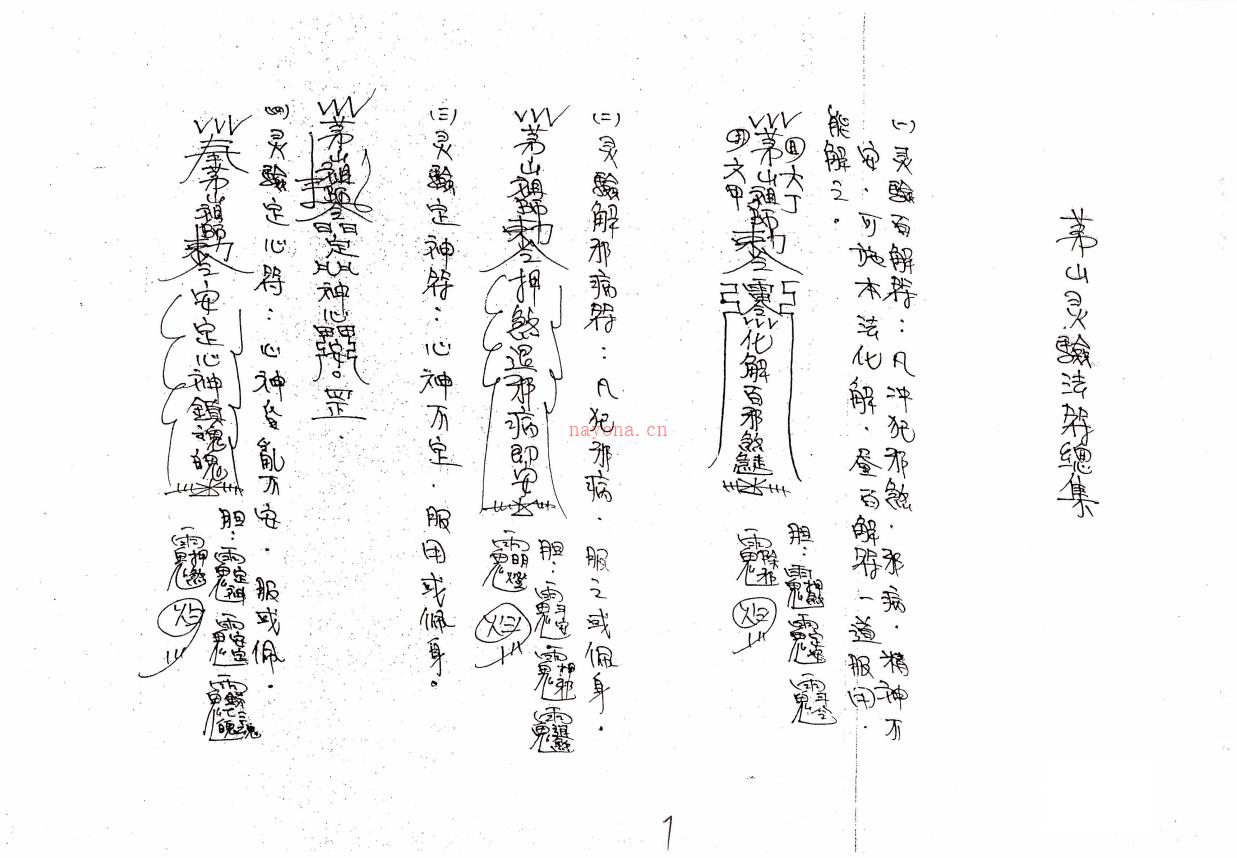 茅山灵驗法符總集
(一)灵驗百解符：凡冲犯邪煞．邪病．精神不
安．可施本法化解．畫百解符一道服用．
能解之。
六丁
茅山祖師勅令靈化解百邪煞
六甲
胆：
(二)灵驗解邪病符：凡犯邪病．服之或佩身。
茅山祖師勅令押煞退邪病即安
胆：
(三)灵驗定神符：心神不定．服用或佩身。
茅山祖師
定神心安
罡
(四)灵驗定心符：心神昏亂不安．服或佩．
奉茅山祖師勅令安定心神鎮魂魄
胆：
nayona.cn
1